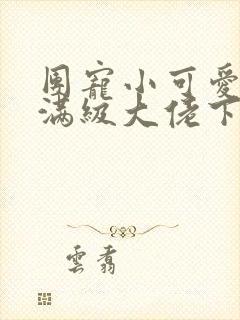 團寵小可愛
滿級大佬下
雲翥